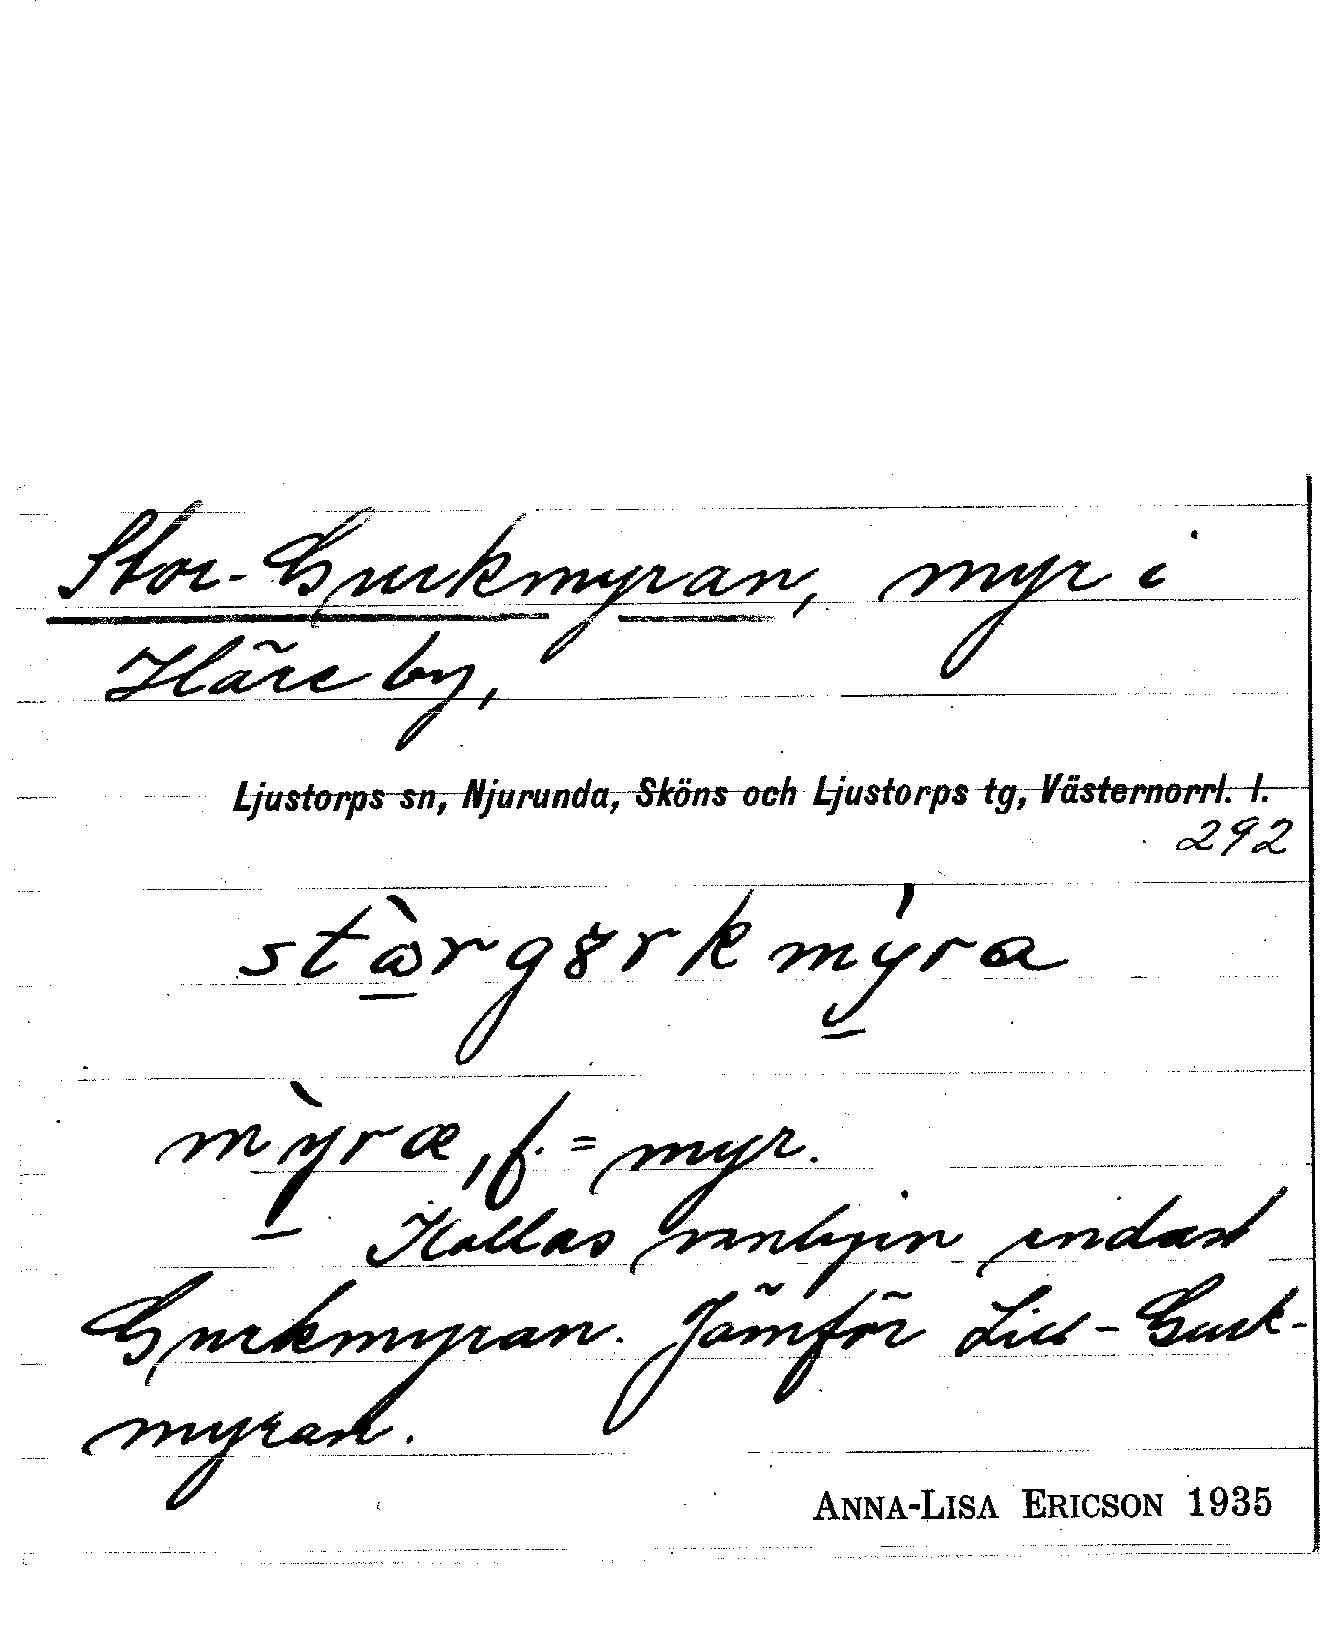 Stor-Gurkmyran, myr i
Häre by,
Ljustorps sn, Njurunda, Sköns och Ljustorps tg, Västernorrl. l.
292
stὼrgȣrkmýra
mỳræ, f. = myr.
Kallas vanligen endast
Gurkmyran. Jämför Lill-Gurk-
myran.
ANNA-LISA ERICSON 1935